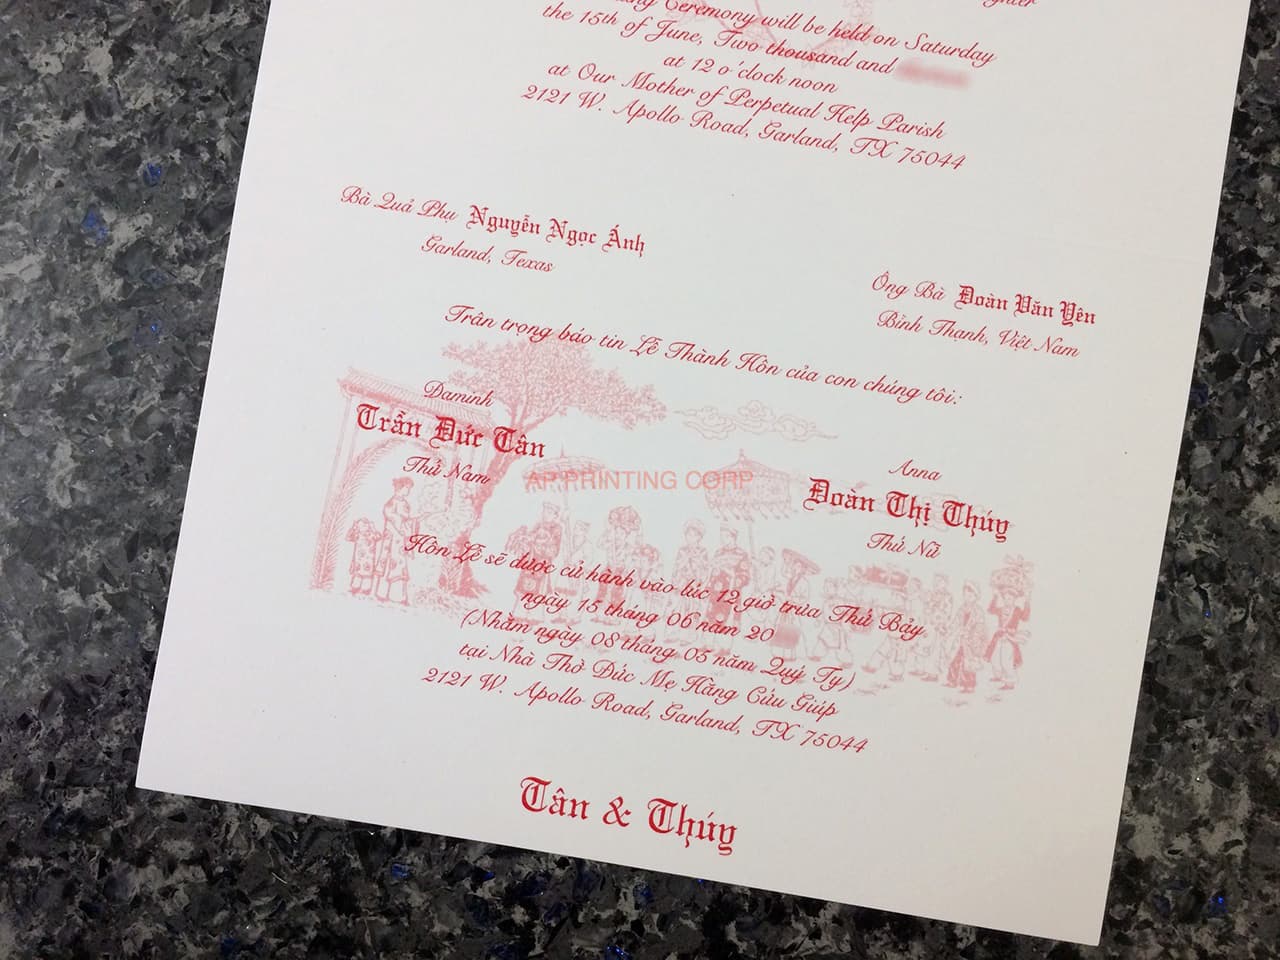 Ceremony will be held on Saturday
the 15th of June, Two thousand and
at 12 o'clock noon
at Our Mother of Perpetual Help Parish
2121 W. Apollo Road, Garland, TX 75044
Bà Quả Phụ Nguyễn Ngọc Ánh
Garland, Texas
Ông Bà Đoàn Văn Yên
Bình Thạnh, Việt Nam
Trân trọng báo tin Lễ Thành Hôn của con chúng tôi:
Đaminh
Trần Đức Tân
Thứ Nam
Anna
Đoàn Thị Thúy
Thứ Nữ
AP PRINTING CORP
Hôn Lễ sẽ được cử hành vào lúc 12 giờ trưa Thứ Bảy,
ngày 15 tháng 06 năm 20
(Nhằm ngày 08 tháng 05 năm Quý Tỵ)
tại Nhà Thờ Đức Mẹ Hằng Cứu Giúp
2121 W. Apollo Road, Garland, TX 75044
Tân & Thúy